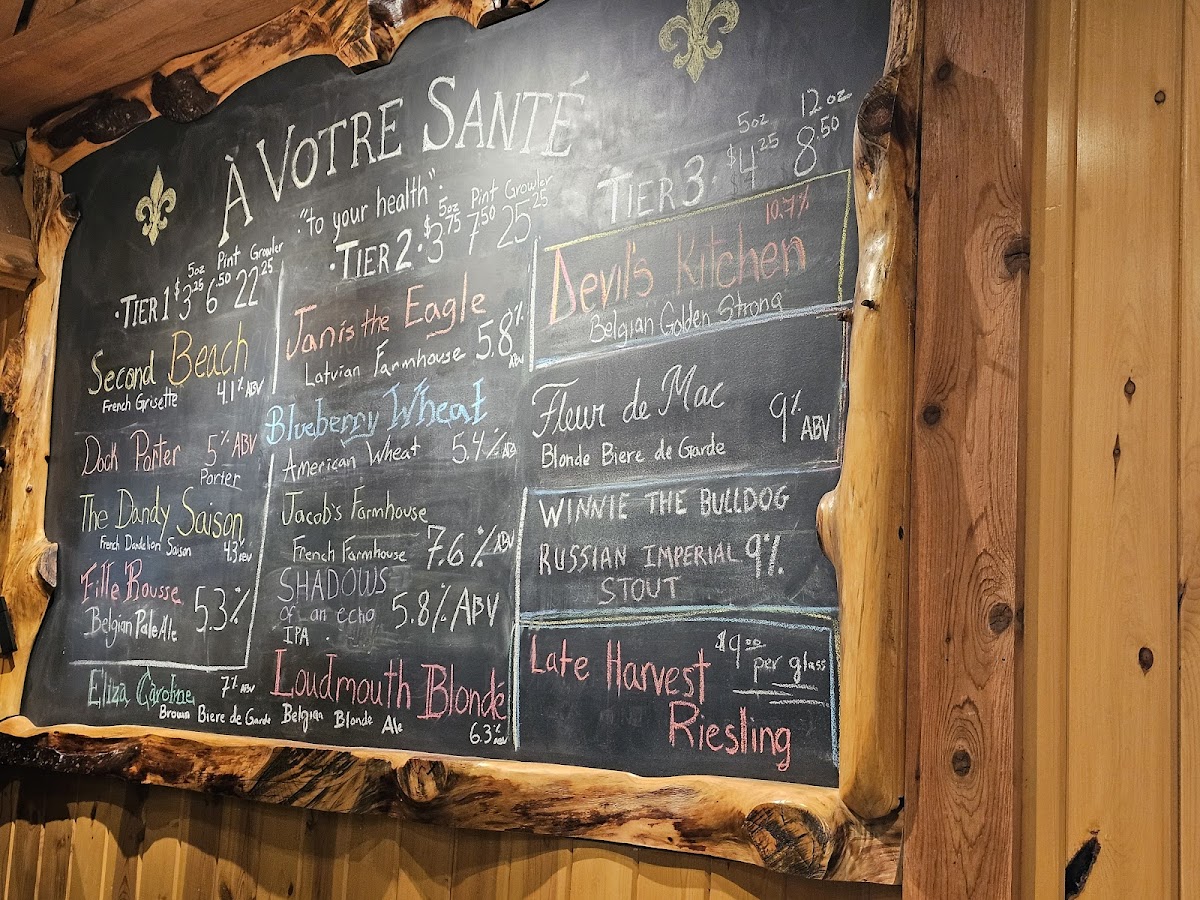 À VOTRE SANTÉ
"to your health":
5oz Pint Growler
• TIER 1 $3.25 6.50 22.25
Second Beach
French Grisette 4.1% ABV
Dock Porter 5% ABV
Porter
The Dandy Saison
French Dandelion Saison 4.3% ABV
Fille Rousse
Belgian Pale Ale 5.3%
Eliza Caroline 7% ABV
Brown Biere de Garde
5oz Pint Growler
• TIER 2 • $3.75 7.50 25.25
Janis the Eagle
Latvian Farmhouse 5.8% ABV
Blueberry Wheat
American Wheat 5.4% ABV
Jacob's Farmhouse
French Farmhouse 7.6% ABV
SHADOWS
of an echo 5.8% ABV
IPA
Loudmouth Blonde
Belgian Blonde Ale 6.3% ABV
5oz 12oz
TIER 3 • $4.25 8.50
10.7%
Devil's Kitchen
Belgian Golden Strong
Fleur de Mac
9% ABV
Blonde Biere de Garde
WINNIE THE BULLDOG
RUSSIAN IMPERIAL 9%
STOUT
Late Harvest $9.00 per glass
Riesling